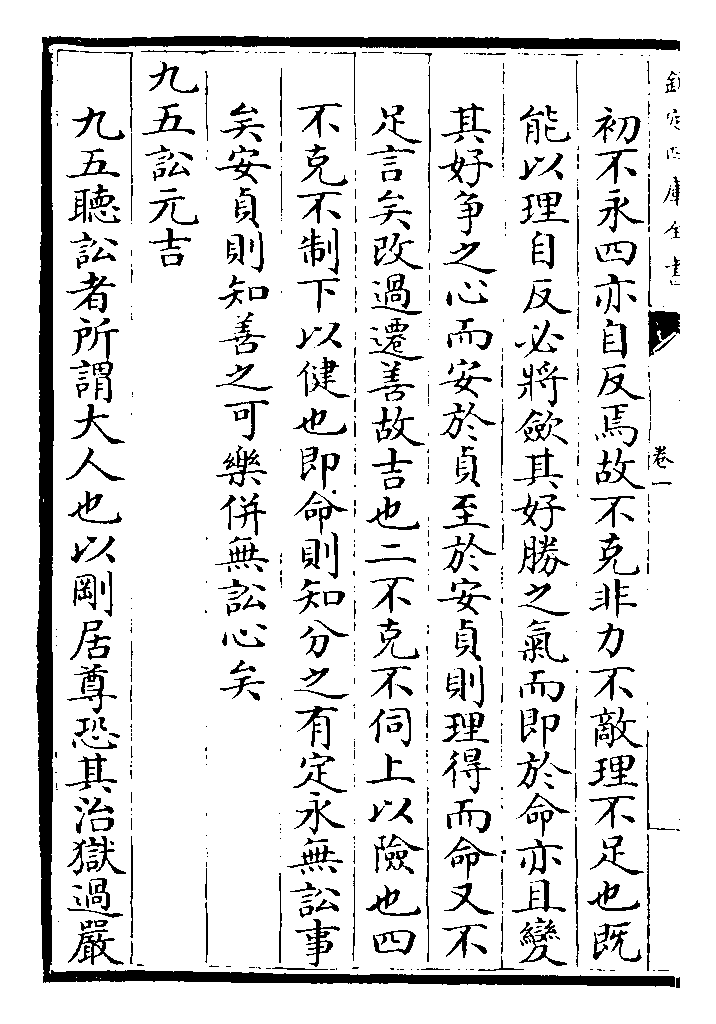 欽定四庫全書
卷一
初不永四亦自反焉故不克非力不敵理不足也既
能以理自反必將歛其好勝之氣而即於命亦且變
其好爭之心而安於貞至於安貞則理得而命又不
足言矣改過遷善故吉也二不克不伺上以險也四
不克不制下以健也即命則知分之有定永無訟事
矣安貞則知善之可樂併無訟心矣
九五訟元吉
九五聽訟者所謂大人也以剛居尊恐其治獄過嚴